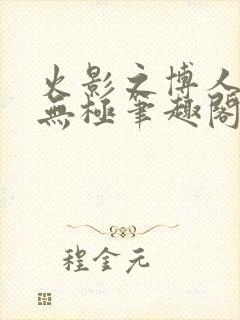 火影之博人
無極筆趣閣
程金元